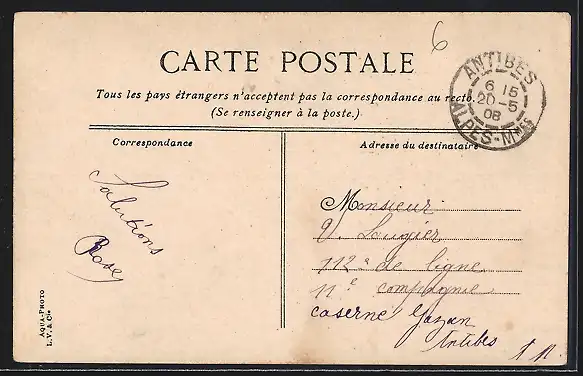 6
CARTE POSTALE
Tous les pays étrangers n'acceptent pas la correspondance au recto.
(Se renseigner à la poste.)
ANTIBES
6 15
20-5
08
ALPES-Mmes
Correspondance
Salutations
Adresse du destinataire
Monsieur
V. Laugier
112e de ligne
11e compagnie
caserne Gazan
Antibes
AQUA-PHOTO
L. V. & Cie